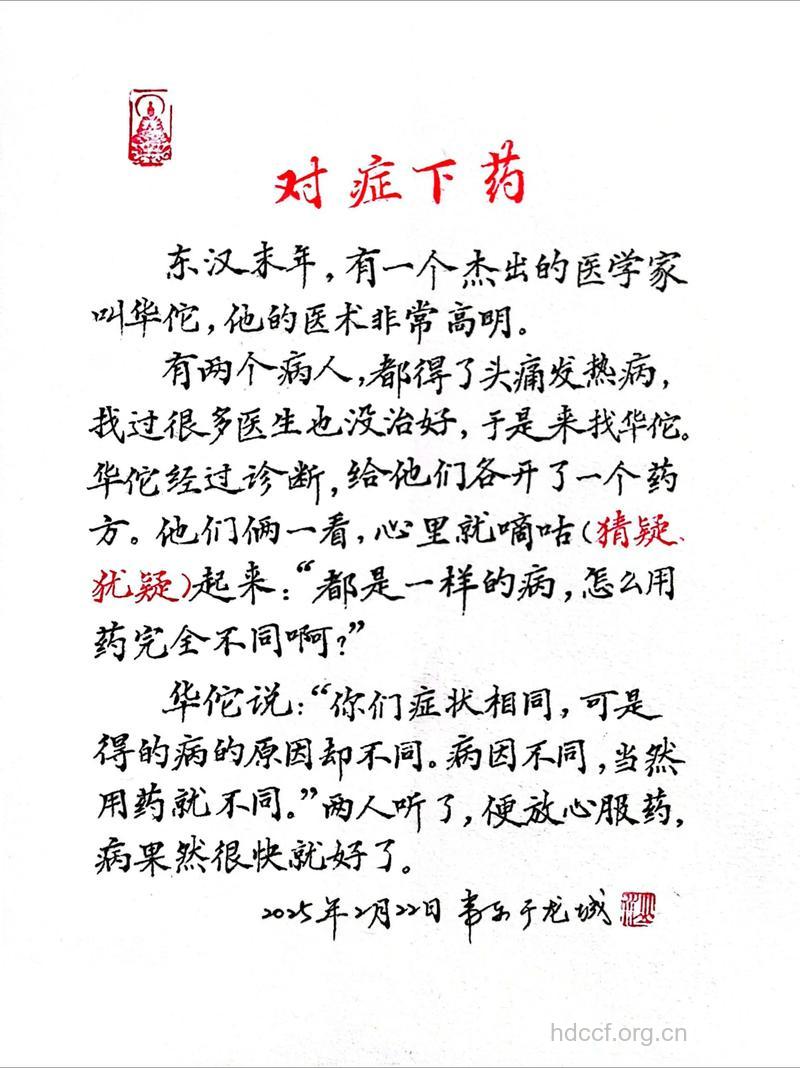 对症下药
东汉末年，有一个杰出的医学家
叫华佗，他的医术非常高明。
有两个病人，都得了头痛发热病，
找过很多医生也没治好，于是来找华佗。
华佗经过诊断，给他们各开了一个药
方。他们俩一看，心里就嘀咕（猜疑、
犹疑）起来：“都是一样的病，怎么用
药完全不同啊？”
华佗说：“你们症状相同，可是
得的病的原因却不同。病因不同，当然
用药就不同。”两人听了，便放心服药，
病果然很快就好了。
2025年2月22日 韦东于龙城
hdccf.org.cn